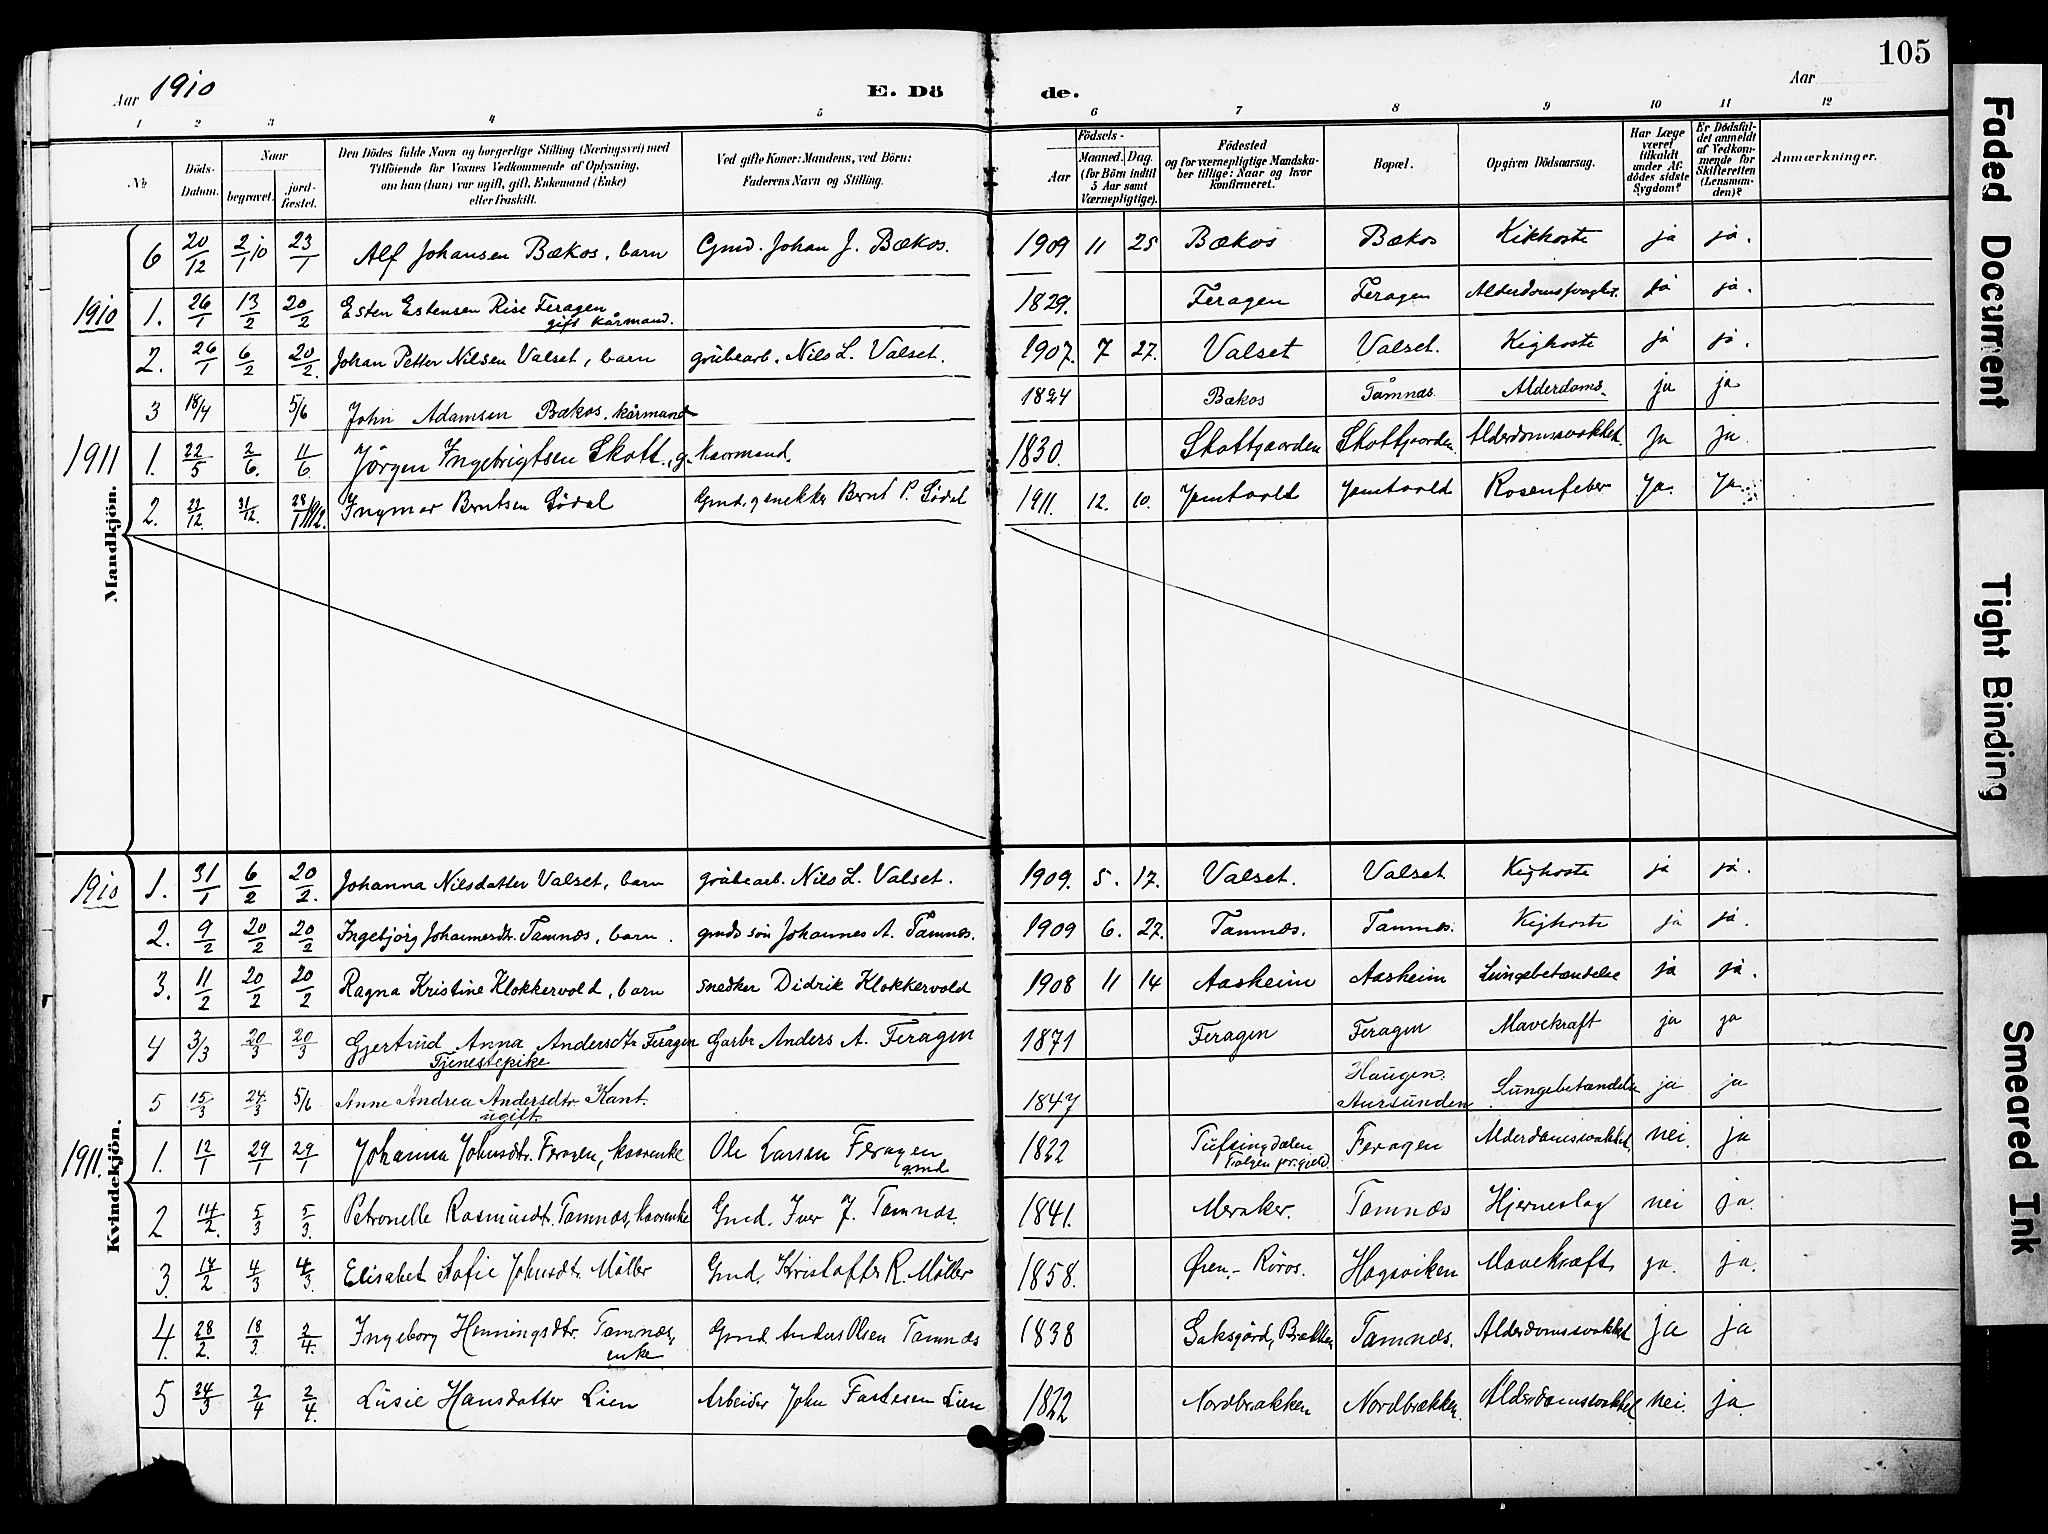 105
Aar 1910 E. Dö de. Aar
1 2 3 4 5 6 7 8 9 10 11 12
No. Döds-Datum. Naar begravet. jordfæstet. Den Dödes fulde Navn og borgerlige Stilling (Næringsvei) med Tilföiende for Voxnes Vedkommende af Oplysning, om han (hun) var ugift, gift, Enkemand (Enke) eller fraskilt. Ved gifte Koner: Mandens, ved Börn: Faderens Navn og Stilling. Födsels- Aar Maaned. Dag. (for Börn indtil 5 Aar samt Værnepligtige). Födested og for værnepligtige Mandskaber tillige: Naar og hvor konfirmeret. Bopæl. Opgiven Dödsaarsag. Har Læge været tilkaldt under Afdödes sidste Sygdom? Er Dödsfaldet anmeldt af Vedkommende for Skifteretten (Lensmanden)? Anmærkninger.
Mandkjön.
6 20/12 2/1 10 23/1 Alf Johansen Bækos, barn Gmd. Johan J. Bækos. 1909 11 25 Bækos Bækos Kikhoste ja ja.
1910 1. 26/1 13/2 20/2 Esten Estensen Rise Feragen 1829. Feragen Feragen ja ja.
gift kårmand.
2. 26/1 6/2 20/2. Johan Petter Nilsen Valset, barn grubearb. Nils L. Valset. 1907. 7 27. Valset Valset. Kighoste ja ja.
3 18/4 5/6 John Adamsen Bækos, kårmand 1824 Bækos Tamnæs Alderdoms. ja ja
1911 1. 22/5 2/6. 11/6 Jörgen Ingebrigtsen Skott, g. kaarmand. 1830. Skottgaarden Skottgaarden Alderdomssvakhet. ja ja
2. 22/12. 31/12. 28/1 1912. Ingmar Berntsen Sødal Gmd. Bernt P. Sødal 1911. 12. 10. Jemtvold Jemtvold Rosenfeber ja. ja
Kvindekjön.
1910 1. 31/1 6/2 20/2. Johanna Nilsdatter Valset, barn grubearb. Nils L. Valset. 1909. 5. 17. Valset. Valset Kighoste ja ja.
2. 9/2 20/2 20/2 Ingebjörg Johannesdt. Tamnæs, barn. gmds sön Johannes A. Tamnæs. 1909 6. 27. Tamnæs. Tamnæs. Kighoste ja ja.
3. 11/2 20/2 20/2 Ragna Kristine Klokkervold, barn snedker Didrik Klokkervold 1908 11 14 Aasheim Aasheim Lungebetændelse ja ja.
4 3/3 20/3 20/3 Gjertrud Anna Andersdtr Feragen Garbr Anders A. Feragen 1871 Feragen Feragen Mavekraft ja ja
Tjenestepike
5 15/3 24/3 5/6 Anne Andrea Andersdtr Kant. 1847 Haugen. Aursunden Lungebetændelse ja ja
ugift.
1911. 1. 12/1 29/1 29/1 Johanna Johnsdtr. Feragen, kaarenke Ole Larsen Feragen gmd 1822 Tufsingdalen Tolgen pr.gjeld. Feragen Alderdomssvakhet, nei. ja
2 14/2. 5/3 5/3. Petronelle Rasmusdt. Tamnæs, kaarenke Gmd. Iver J. Tamnæs. 1841. Meraker. Tamnæs Hjerneslag nei ja.
3. 17/2 4/3 4/3. Elisabet Sofie Johnsdtr. Møller Gmd. Kristoffer R. Møller 1858. Øien, Röros. Hagaviken Mavekræft ja. ja.
4. 28/2. 18/3. 2/4. Ingeborg Henningsdtr. Tamnæs, Gmd. Anders Olsen Tamnæs 1838 Gaksgård, Brækken Tamnæs. Alderdomssvakhet ja ja
enke
5 24/3 2/4 2/4. Lusie Hansdatter Lien Arbeider John Lien 1822 Nordbrækken Nordbrækken. Alderdomssvakhet nei. ja.
Faded Document
Tight Binding
Smeared Ink